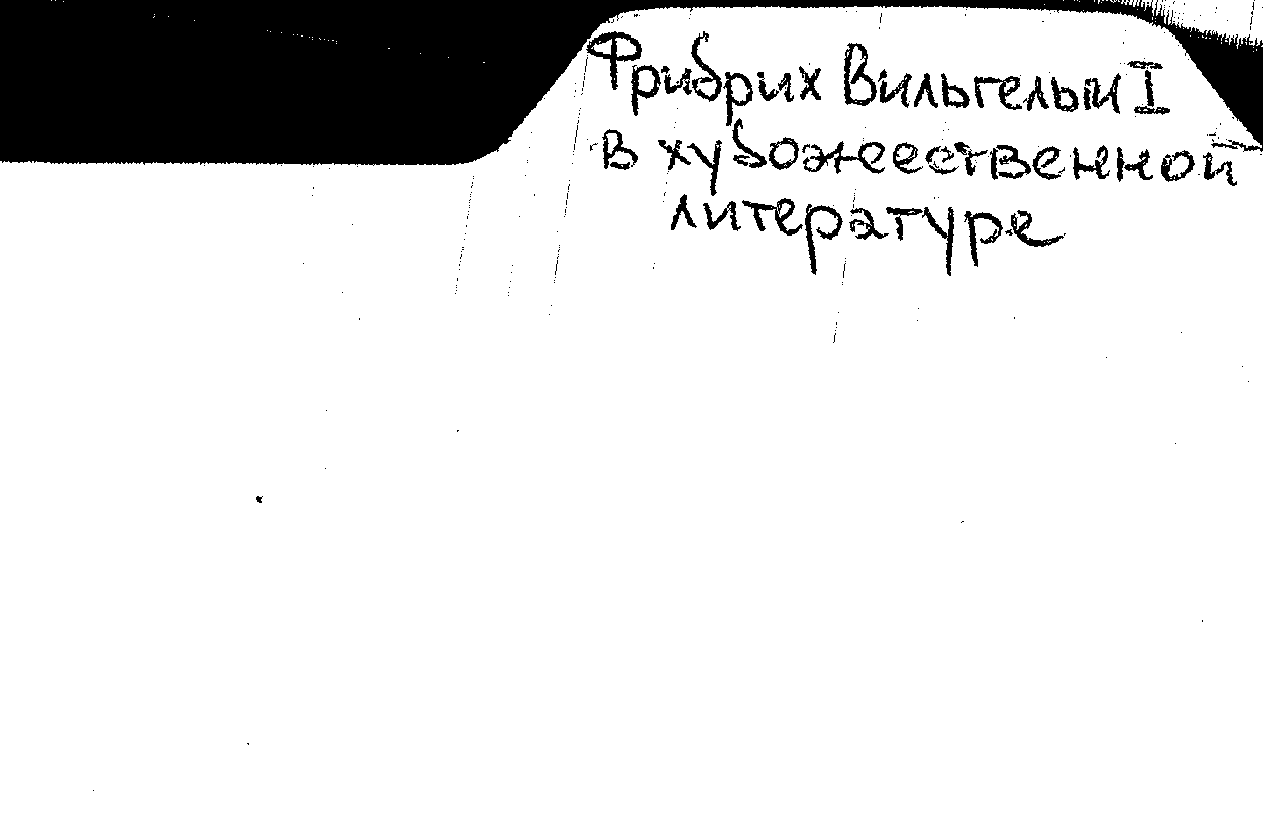 Фридрих Вильгельм I
в художественной
литературе